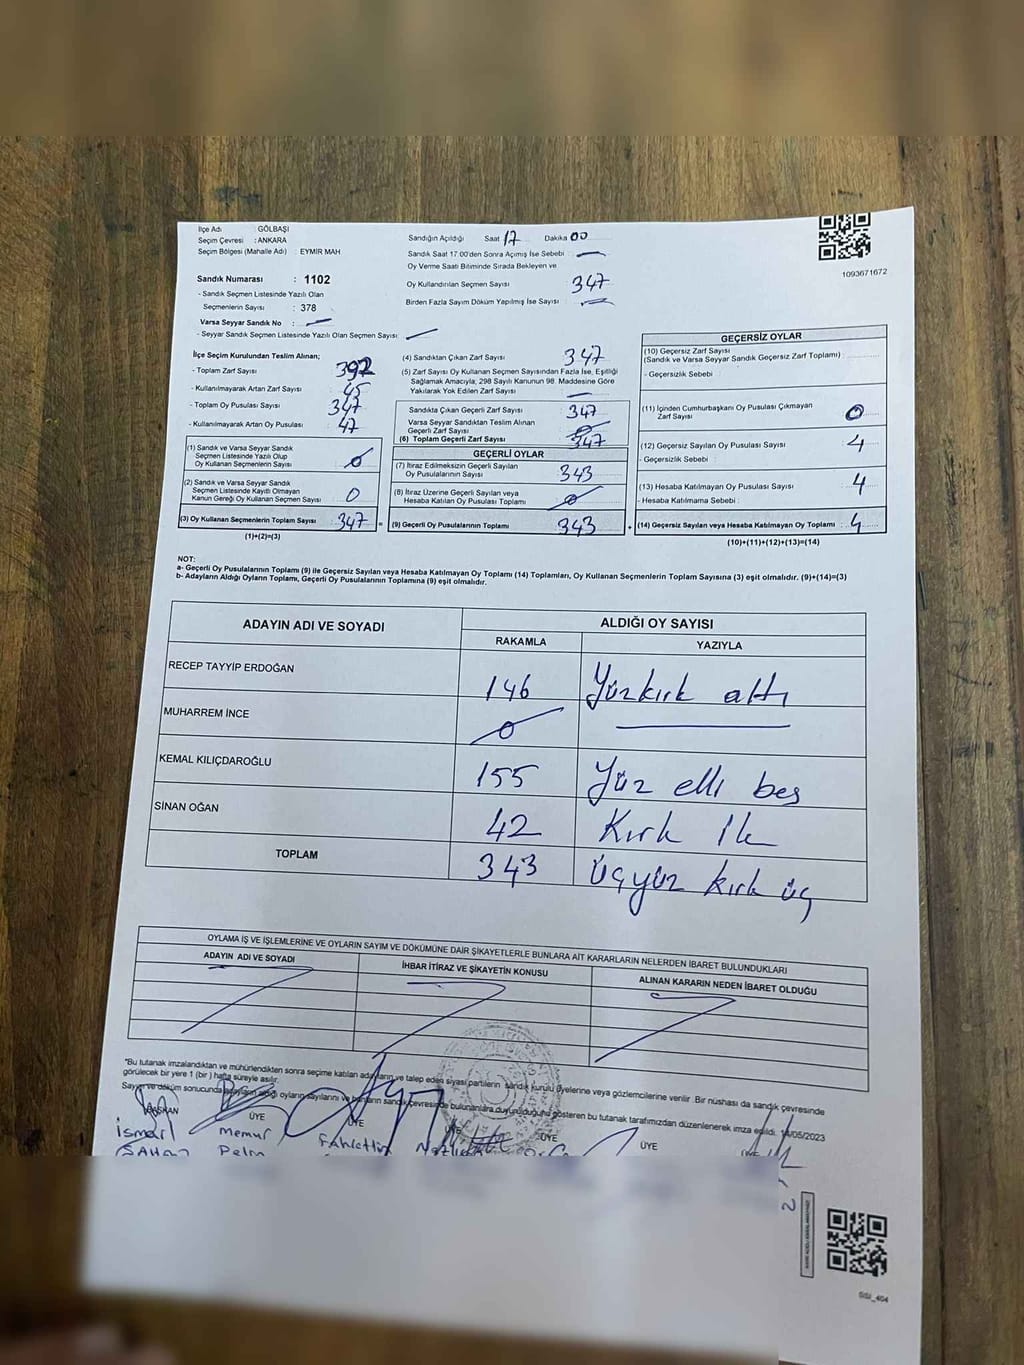 İlçe Adı : GÖLBAŞI
Seçim Çevresi : ANKARA
Seçim Bölgesi (Mahalle Adı) : EYMİR MAH
Sandık Numarası : 1102
- Sandık Seçmen Listesinde Yazılı Olan
Seçmenlerin Sayısı : 378
Varsa Seyyar Sandık No :
- Seyyar Sandık Seçmen Listesinde Yazılı Olan Seçmen Sayısı:
Sandığın Açıldığı Saat 17 Dakika 00
Sandık Saat 17:00'den Sonra Açılmış İse Sebebi :
Oy Verme Saati Bitiminde Sırada Bekleyen ve
Oy Kullandırılan Seçmen Sayısı : 347
Birden Fazla Sayım Döküm Yapılmış İse Sayısı :
1093671672
İlçe Seçim Kurulundan Teslim Alınan;
- Toplam Zarf Sayısı : 392
- Kullanılmayarak Artan Zarf Sayısı : 45
- Toplam Oy Pusulası Sayısı : 347
- Kullanılmayarak Artan Oy Pusulası : 47
(1) Sandık ve Varsa Seyyar Sandık
Seçmen Listesinde Yazılı Olup
Oy Kullanan Seçmenlerin Sayısı : 0
(2) Sandık ve Varsa Seyyar Sandık
Seçmen Listesinde Kayıtlı Olmayan
Kanun Gereği Oy Kullanan Seçmen Sayısı : 0
(3) Oy Kullanan Seçmenlerin Toplam Sayısı : 347 =
(1)+(2)=(3)
(4) Sandıktan Çıkan Zarf Sayısı : 347
(5) Zarf Sayısı Oy Kullanan Seçmen Sayısından Fazla İse, Eşitliği
Sağlamak Amacıyla; 298 Sayılı Kanunun 98. Maddesine Göre
Yakılarak Yok Edilen Zarf Sayısı :
Sandıkta Çıkan Geçerli Zarf Sayısı : 347
Varsa Seyyar Sandıktan Teslim Alınan
Geçerli Zarf Sayısı : 0
(6) Toplam Geçerli Zarf Sayısı : 347
GEÇERLİ OYLAR
(7) İtiraz Edilmeksizin Geçerli Sayılan
Oy Pusulalarının Sayısı : 343
(8) İtiraz Üzerine Geçerli Sayılan veya
Hesaba Katılan Oy Pusulaları Toplamı : 0
(9) Geçerli Oy Pusulalarının Toplamı : 343 +
GEÇERSİZ OYLAR
(10) Geçersiz Zarf Sayısı
(Sandık ve Varsa Seyyar Sandık Geçersiz Zarf Toplamı) :
- Geçersizlik Sebebi :
(11) İçinden Cumhurbaşkanı Oy Pusulası Çıkmayan
Zarf Sayısı : 0
(12) Geçersiz Sayılan Oy Pusulası Sayısı : 4
- Geçersizlik Sebebi :
(13) Hesaba Katılmayan Oy Pusulası Sayısı : 4
- Hesaba Katılmama Sebebi :
(14) Geçersiz Sayılan veya Hesaba Katılmayan Oy Toplamı : 4
(10)+(11)+(12)+(13)=(14)
NOT:
a- Geçerli Oy Pusulalarının Toplamı (9) ile Geçersiz Sayılan veya Hesaba Katılmayan Oy Toplamı (14) Toplamları, Oy Kullanan Seçmenlerin Toplam Sayısına (3) eşit olmalıdır. (9)+(14)=(3)
b- Adayların Aldığı Oyların Toplamı, Geçerli Oy Pusulalarının Toplamına (9) eşit olmalıdır.
ADAYIN ADI VE SOYADI ALDIĞI OY SAYISI
RAKAMLA YAZIYLA
RECEP TAYYİP ERDOĞAN 146 Yüzkırk altı
MUHARREM İNCE 0
KEMAL KILIÇDAROĞLU 155 Yüz elli beş
SİNAN OĞAN 42 Kırk İk
TOPLAM 343 üçyüz kırk üç
OYLAMA İŞ VE İŞLEMLERİNE VE OYLARIN SAYIM VE DÖKÜMÜNE DAİR ŞİKAYETLERLE BUNLARA AİT KARARLARIN NELERDEN İBARET BULUNDUKLARI
ADAYIN ADI VE SOYADI İHBAR İTİRAZ VE ŞİKAYETİN KONUSU ALINAN KARARIN NEDEN İBARET OLDUĞU
*Bu tutanak imzalandıktan ve mühürlendikten sonra seçime katılan adayların ve talep eden siyasi partilerin sandık kurulu üyelerine veya gözlemcilerine verilir .Bir nüshası da sandık çevresinde
görülecek bir yere 1 (bir ) hafta süreyle asılır.
Sayım ve döküm sonucunda adayların aldığı oyların sayılarını ve bunların sandık çevresinde bulunanlara duyurulduğunu gösteren bu tutanak tarafımızdan düzenlenerek imza edildi. 14/05/2023
BAŞKAN ÜYE ÜYE ÜYE ÜYE ÜYE ÜYE
ismail memur Fahrettin